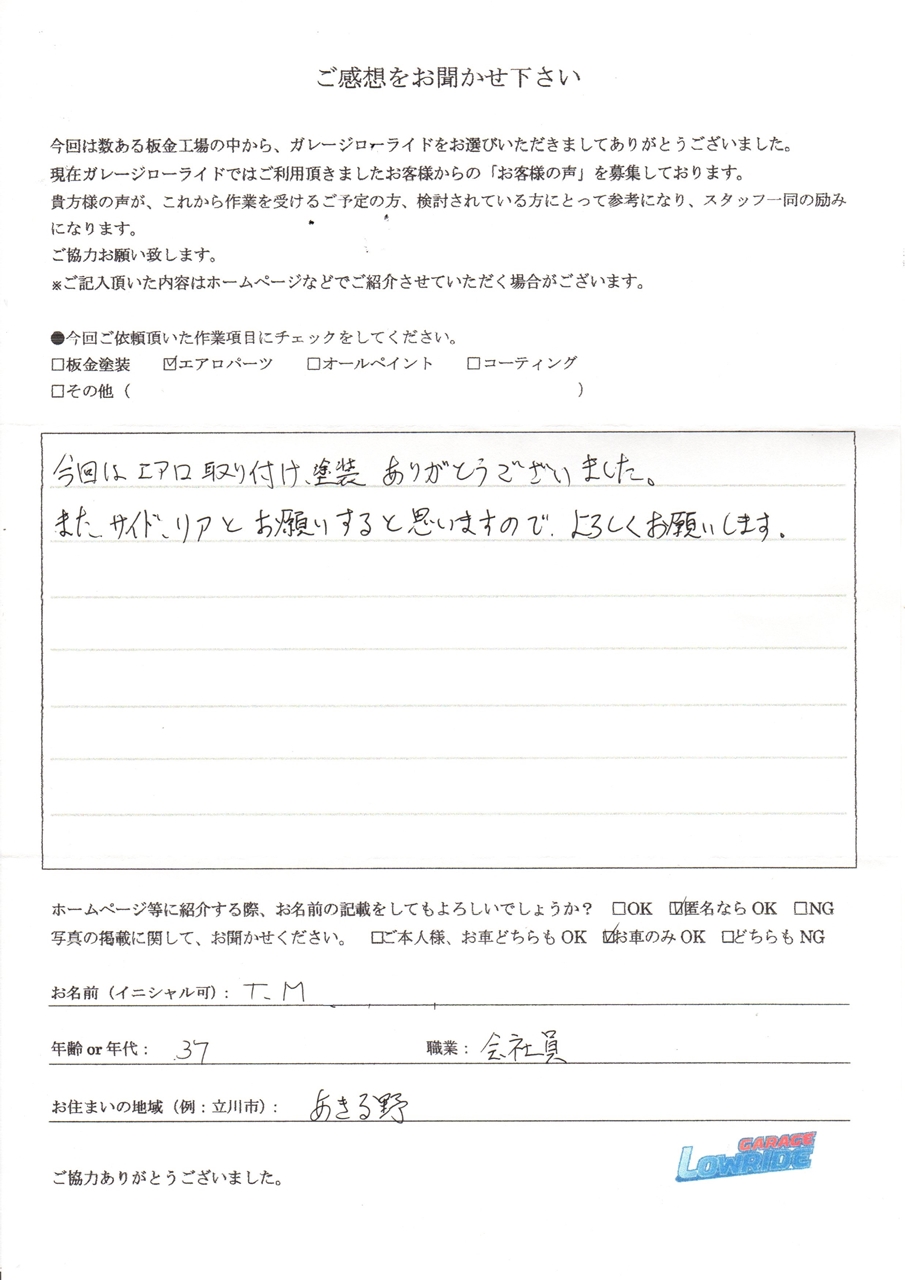 ご感想をお聞かせ下さい
今回は数ある板金工場の中から、ガレージローライドをお選びいただきましてありがとうございました。
現在ガレージローライドではご利用頂きましたお客様からの「お客様の声」を募集しております。
貴方様の声が、これから作業を受けるご予定の方、検討されている方にとって参考になり、スタッフ一同の励み
になります。
ご協力お願い致します。
※ご記入頂いた内容はホームページなどでご紹介させていただく場合がございます。
●今回ご依頼頂いた作業項目にチェックをしてください。
□板金塗装 ☑エアロパーツ □オールペイント □コーティング
□その他（ ）
今回は エアロ 取り付け、塗装 ありがとうございました。
また、サイド、リアと お願いすると思いますので、よろしくお願いします。
ホームページ等に紹介する際、お名前の記載をしてもよろしいでしょうか？ □OK ☑匿名なら OK □NG
写真の掲載に関して、お聞かせください。 □ご本人様、お車どちらも OK ☑お車のみ OK □どちらも NG
お名前（イニシャル可）： T.M
年齢 or 年代： 37 職業： 会社員
お住まいの地域（例：立川市）： あきる野
GARAGE
LOWRIDE
ご協力ありがとうございました。